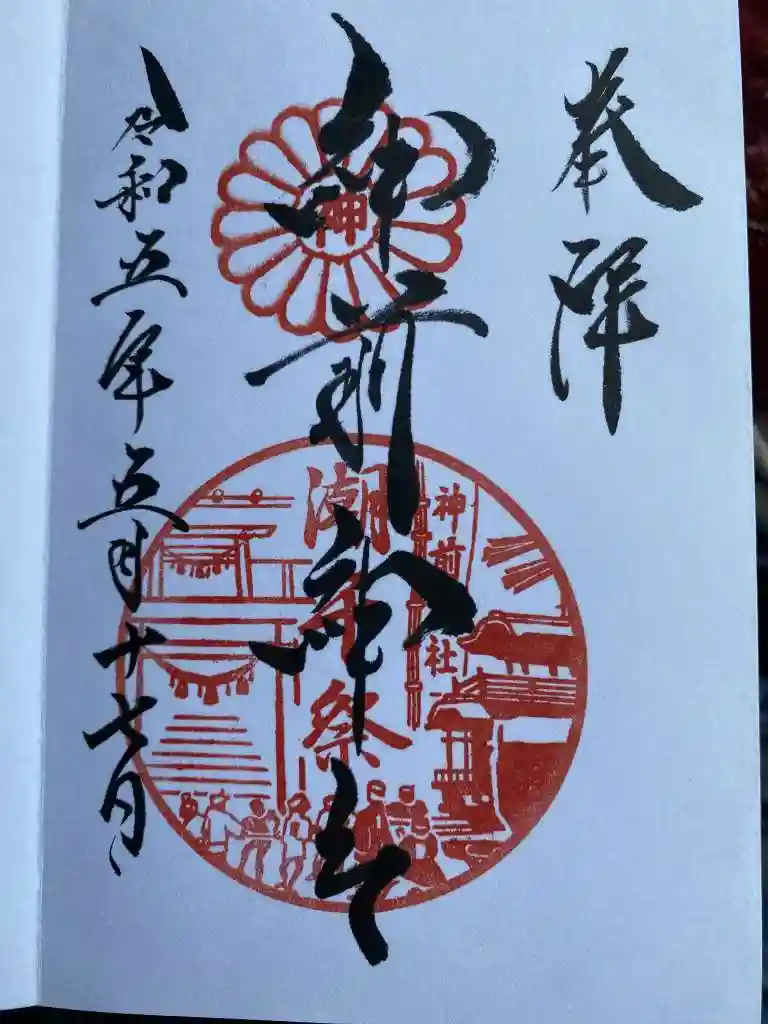 奉拝
神前神社
令和五年五月十七日
神
神前神社
潮干祭